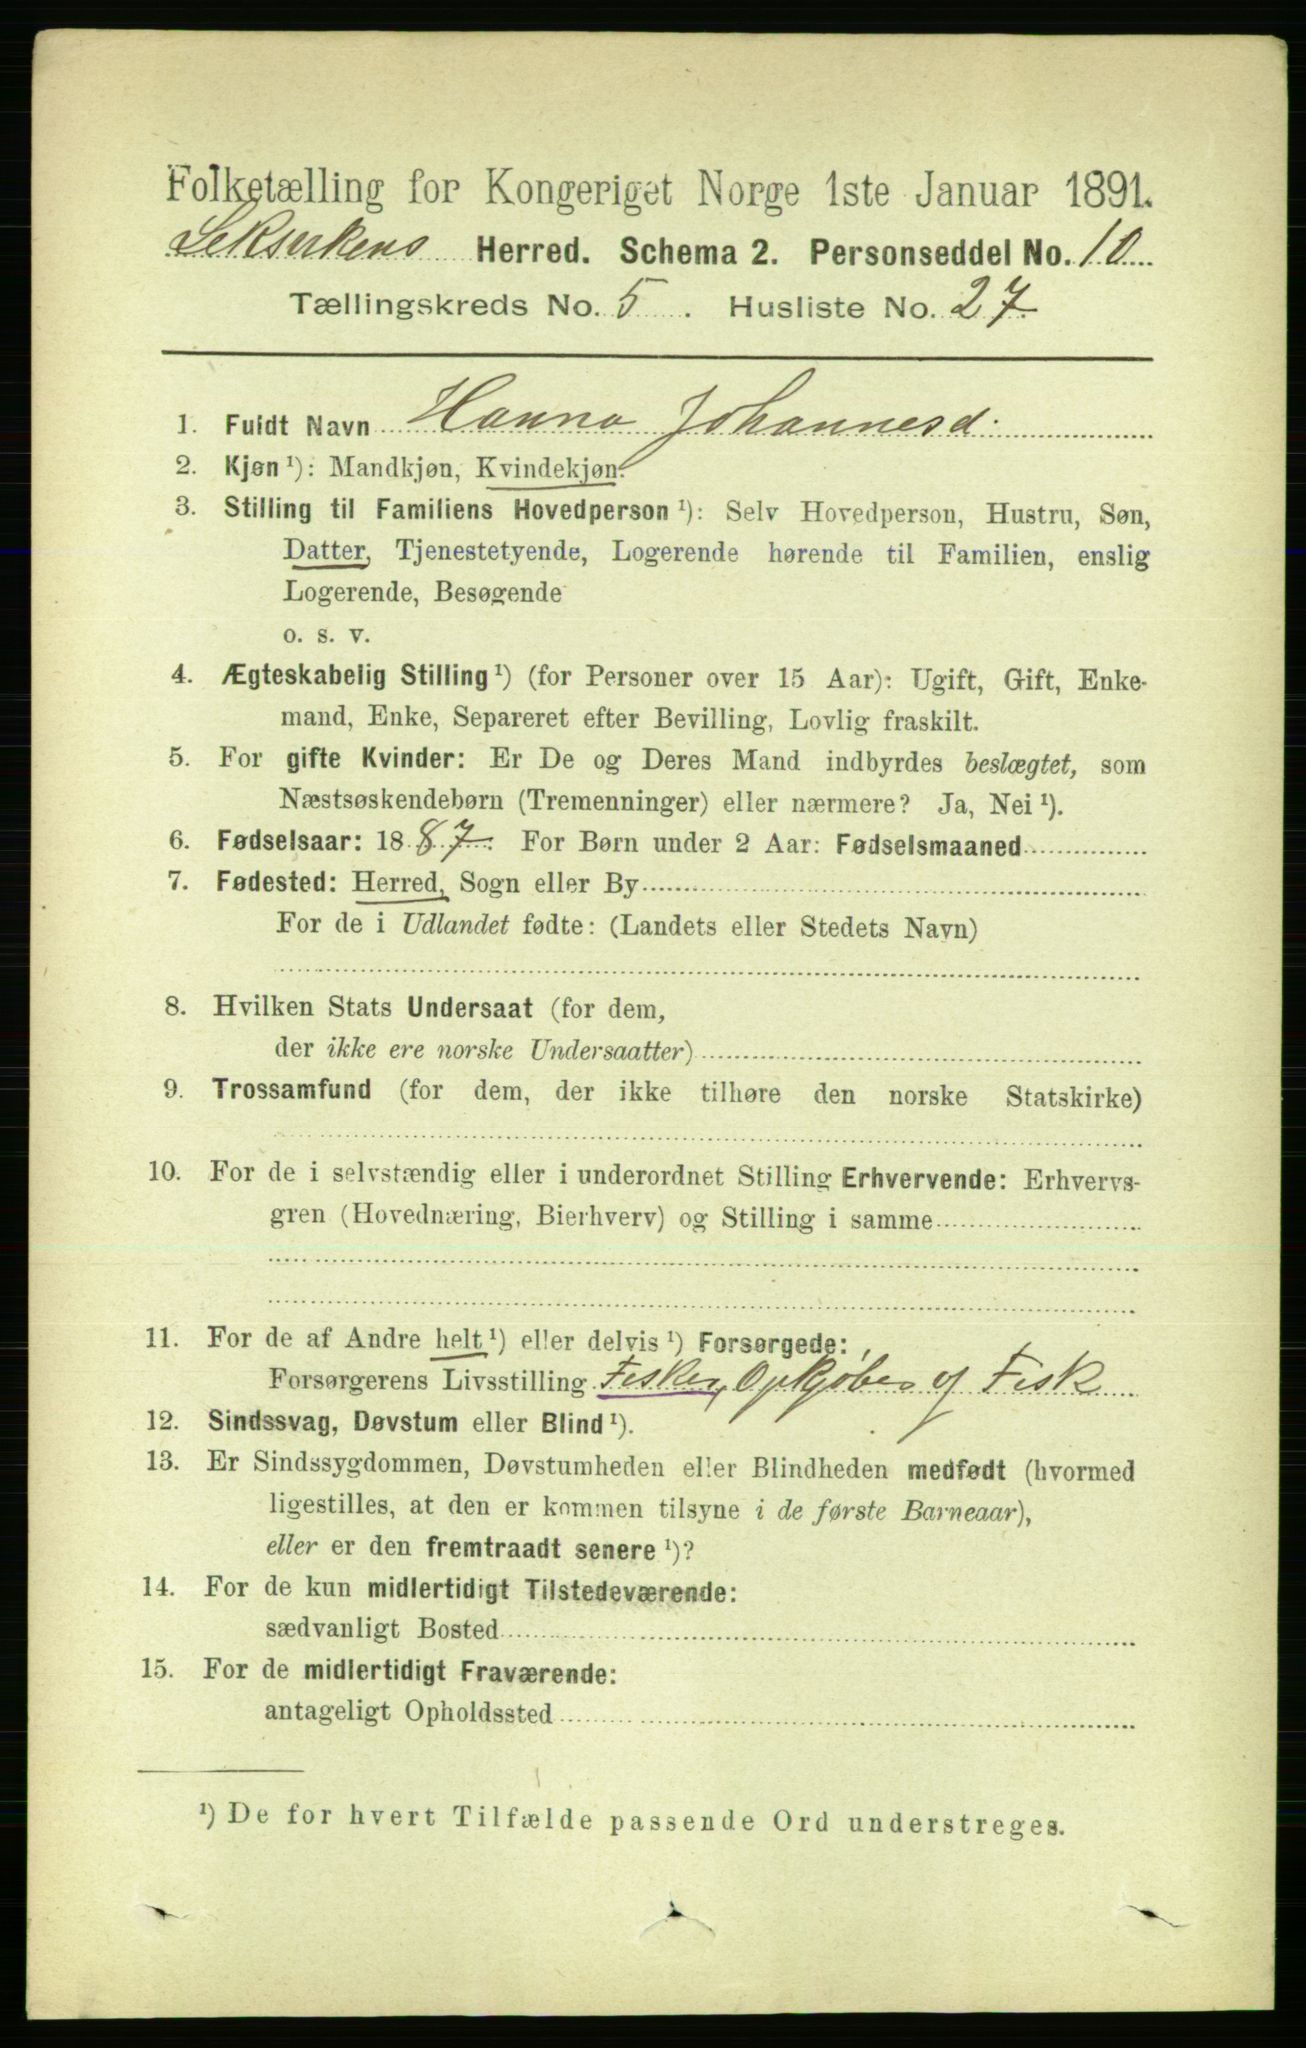 Folketælling for Kongeriget Norge 1ste Januar 1891.
Leksvikens Herred. Schema 2. Personseddel No. 10
Tællingskreds No. 5. Husliste No. 27
1. Fuldt Navn Hanna Johannesd.
2. Kjøn ¹): Mandkjøn, Kvindekjøn.
3. Stilling til Familiens Hovedperson ¹): Selv Hovedperson, Hustru, Søn,
Datter, Tjenestetyende, Logerende hørende til Familien, enslig
Logerende, Besøgende
o. s. v.
4. Ægteskabelig Stilling ¹) (for Personer over 15 Aar): Ugift, Gift, Enke-
mand, Enke, Separeret efter Bevilling, Lovlig fraskilt.
5. For gifte Kvinder: Er De og Deres Mand indbyrdes beslægtet, som
Næstsøskendebørn (Tremenninger) eller nærmere? Ja, Nei ¹).
6. Fødselsaar: 1887. For Børn under 2 Aar: Fødselsmaaned
7. Fødested: Herred, Sogn eller By
For de i Udlandet fødte: (Landets eller Stedets Navn)
8. Hvilken Stats Undersaat (for dem,
der ikke ere norske Undersaatter)
9. Trossamfund (for dem, der ikke tilhøre den norske Statskirke)
10. For de i selvstændig eller i underordnet Stilling Erhvervende: Erhvervs-
gren (Hovednæring, Bierhverv) og Stilling i samme
11. For de af Andre helt ¹) eller delvis ¹) Forsørgede:
Forsørgerens Livsstilling Fisker, Opkjøber af Fisk
12. Sindssvag, Døvstum eller Blind ¹).
13. Er Sindssygdommen, Døvstumheden eller Blindheden medfødt (hvormed
ligestilles, at den er kommen tilsyne i de første Barneaar),
eller er den fremtraadt senere ¹)?
14. For de kun midlertidigt Tilstedeværende:
sædvanligt Bosted
15. For de midlertidigt Fraværende:
antageligt Opholdssted
¹) De for hvert Tilfælde passende Ord understreges.